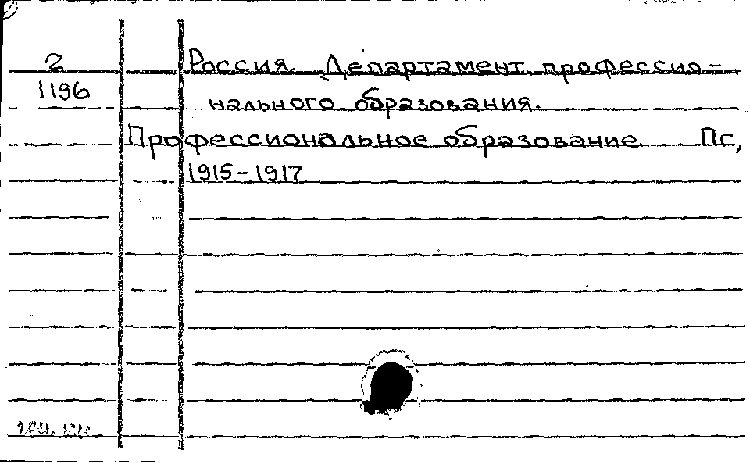 2
Россия. Департамент профессио-
1196
нального образования.
Профессиональное образование Пг,
1915-1917